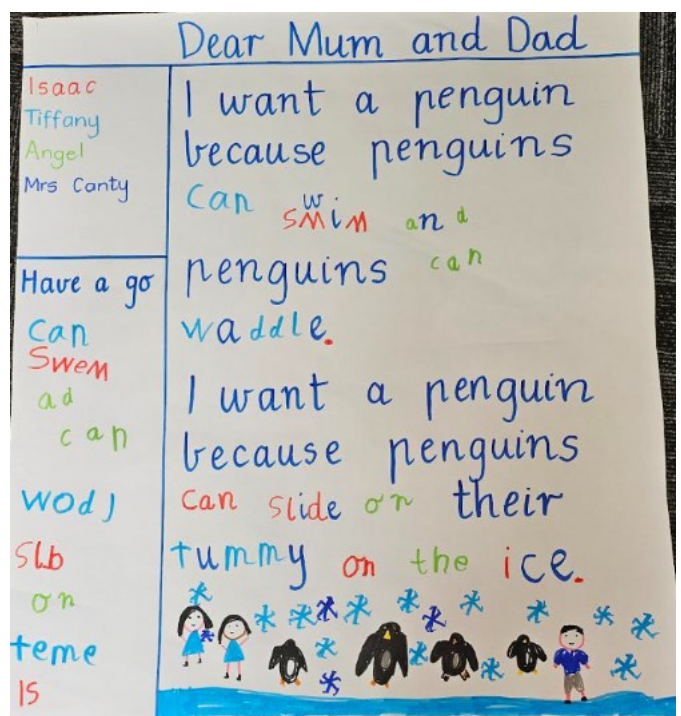 Dear Mum and Dad
Isaac
Tiffany
Angel
Mrs Canty
Have a go
Can
Swem
ad
can
wodl
Slb
on
teme
Is
I want a penguin
because penguins
can swim and
penguins can
waddle.
I want a penguin
because penguins
can slide on their
tummy on the ice.